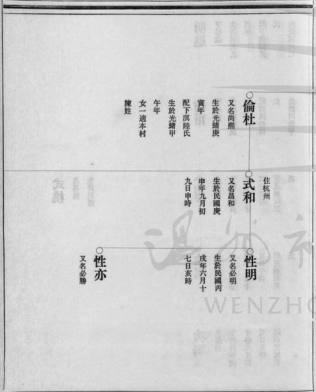 倫杜
又名尚熙
生於光緒庚
寅年
配下濱陸氏
生於光緒甲
午年
女一適本村
陳姓
住杭州
式和
又名昌和
生於民國庚
申年九月初
九日申時
性明
又名必明
生於民國丙
戌年六月十
七日亥時
性亦
又名必勝
WENZHO